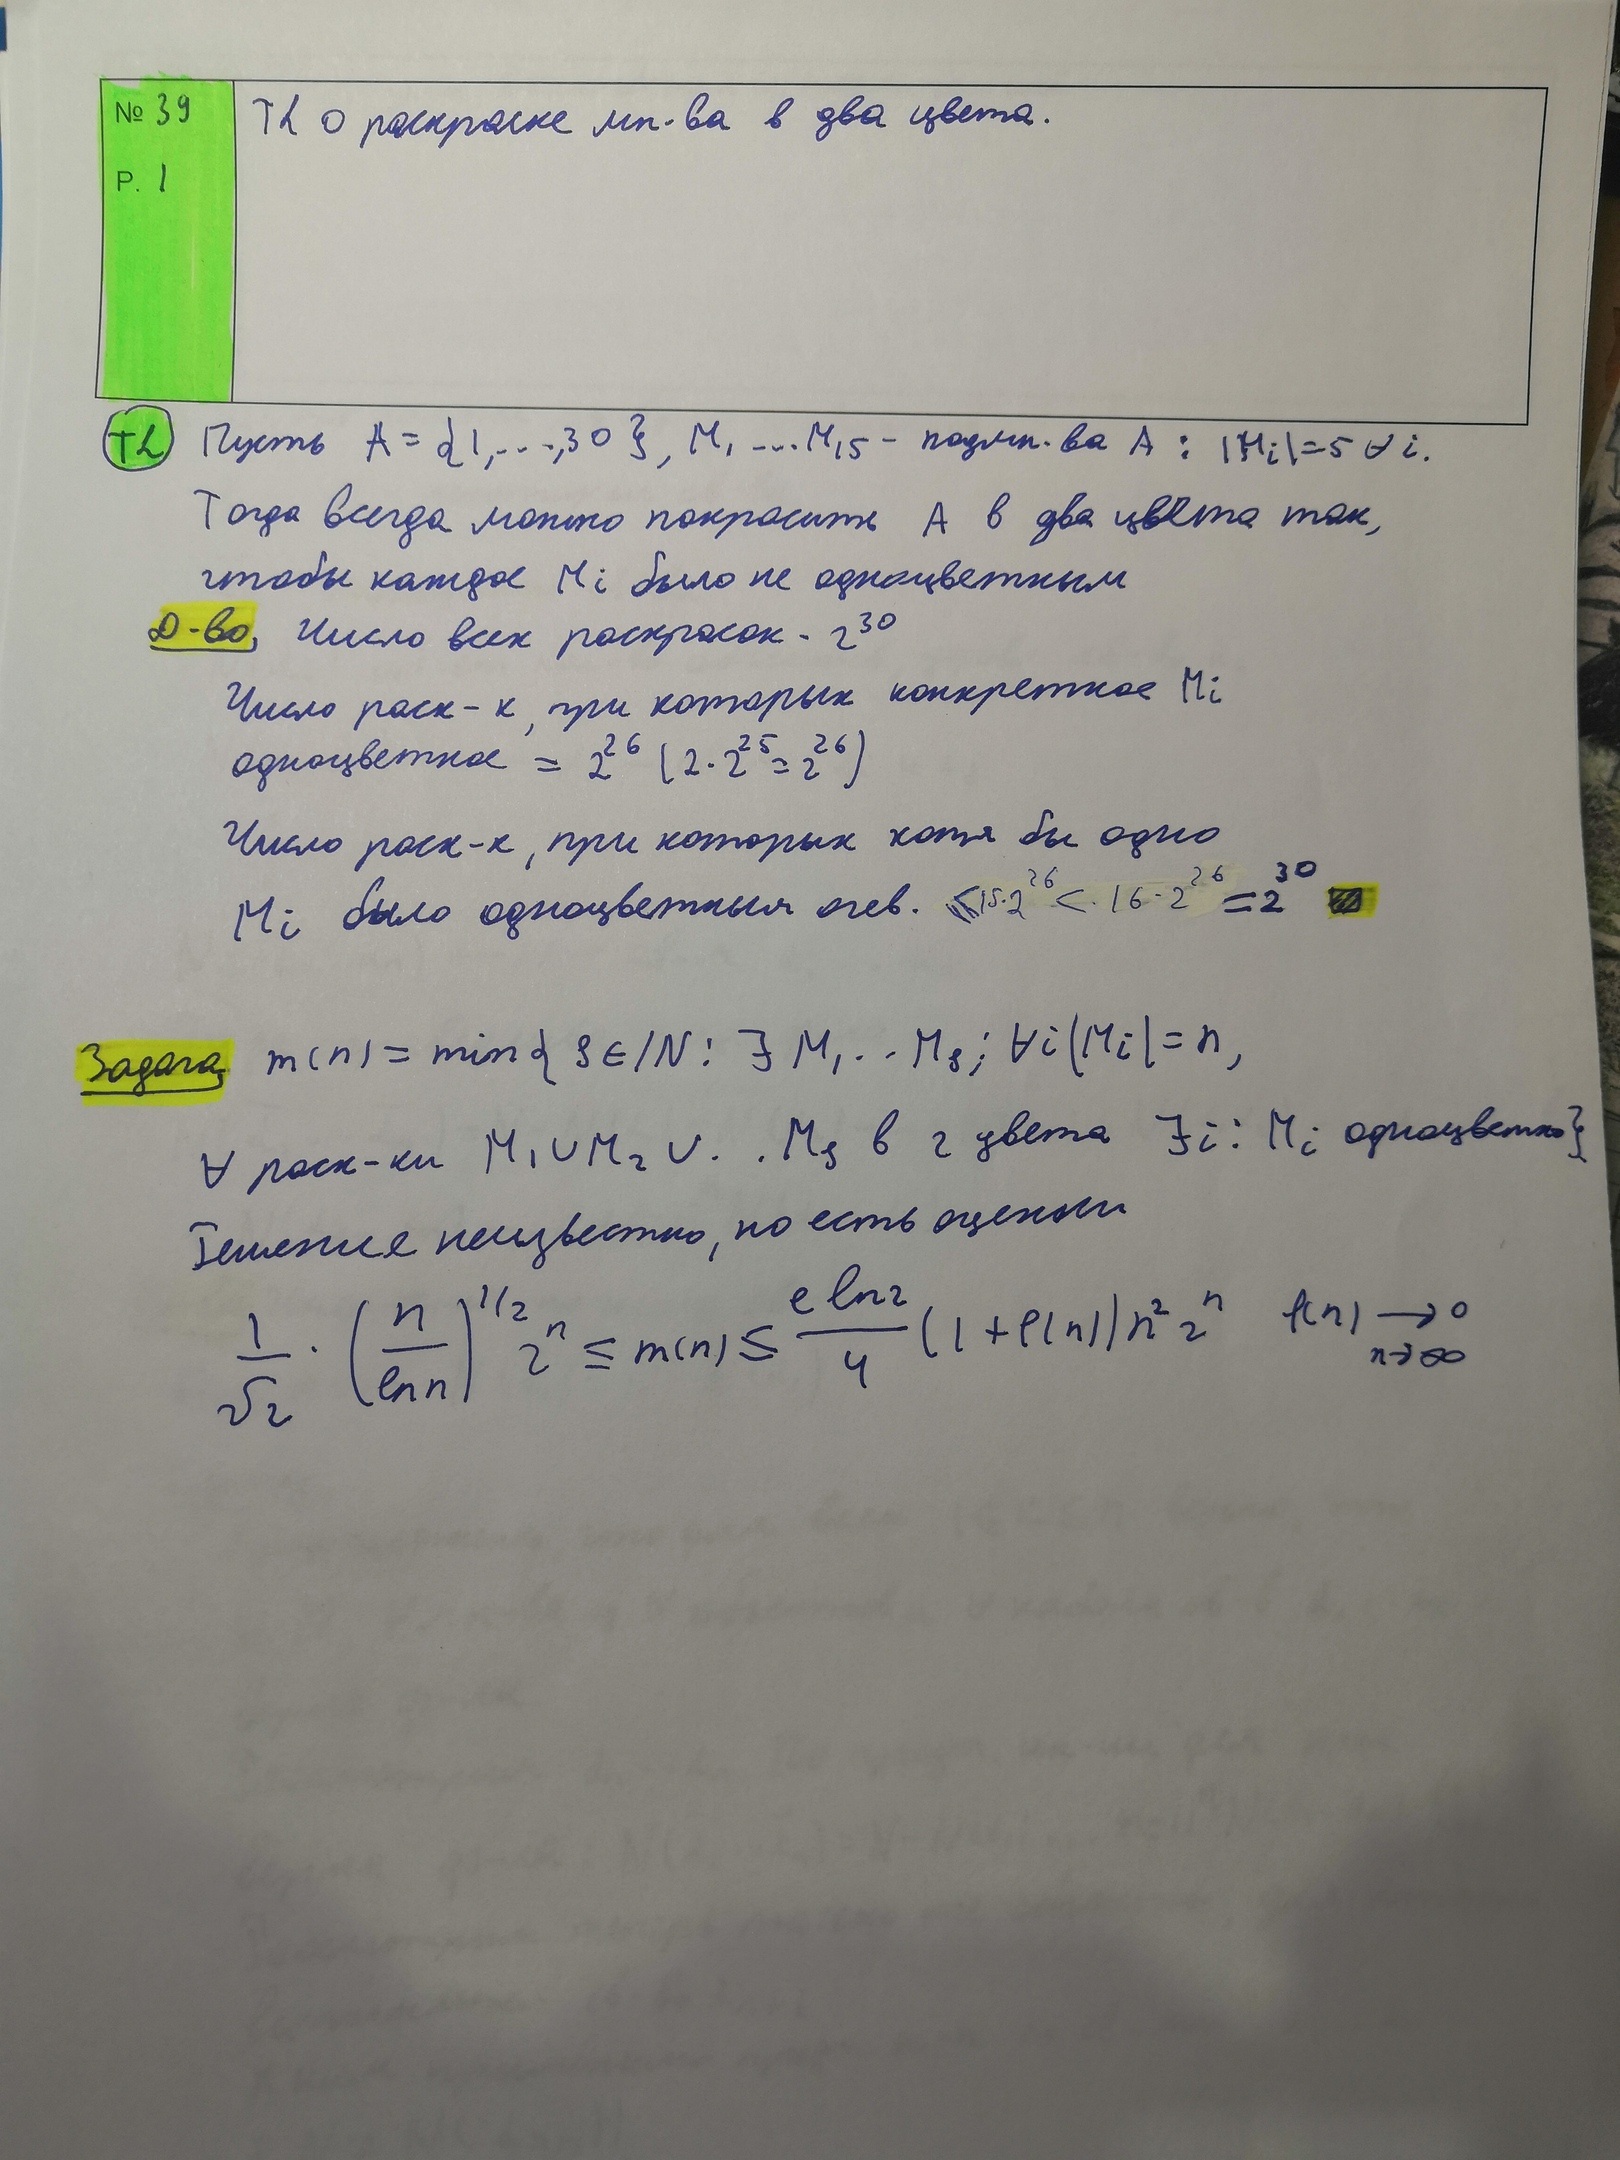 № 39
Р. 1
Th о раскраске мн-ва в два цвета.
Th Пусть A = {1,...,30}, M₁ ... M₁₅ - подмн-ва A : |Mᵢ|=5 ∀i.
Тогда всегда можно покрасить A в два цвета так,
чтобы каждое Mᵢ было не одноцветным
Д-во. Число всех раскрасок - 2³⁰
Число раск-к, при которых конкретное Mᵢ
одноцветное = 2²⁶ (2·2²⁵=2²⁶)
Число раск-к, при которых хотя бы одно
Mᵢ было одноцветным очев. ≤15·2²⁶ < 16·2²⁶ = 2³⁰
Задача m(n) = min{ s∈ℕ: ∃ M₁..Mₛ; ∀i|Mᵢ|=n,
∀ раск-ки M₁∪M₂∪...Mₛ в 2 цвета ∃i: Mᵢ одноцветно}
Решение неизвестно, но есть оценки
1/√2 · (n/ln n)^{1/2} 2ⁿ ≤ m(n) ≤ e ln2/4 (1+f(n)) n² 2ⁿ f(n) → 0 n→∞